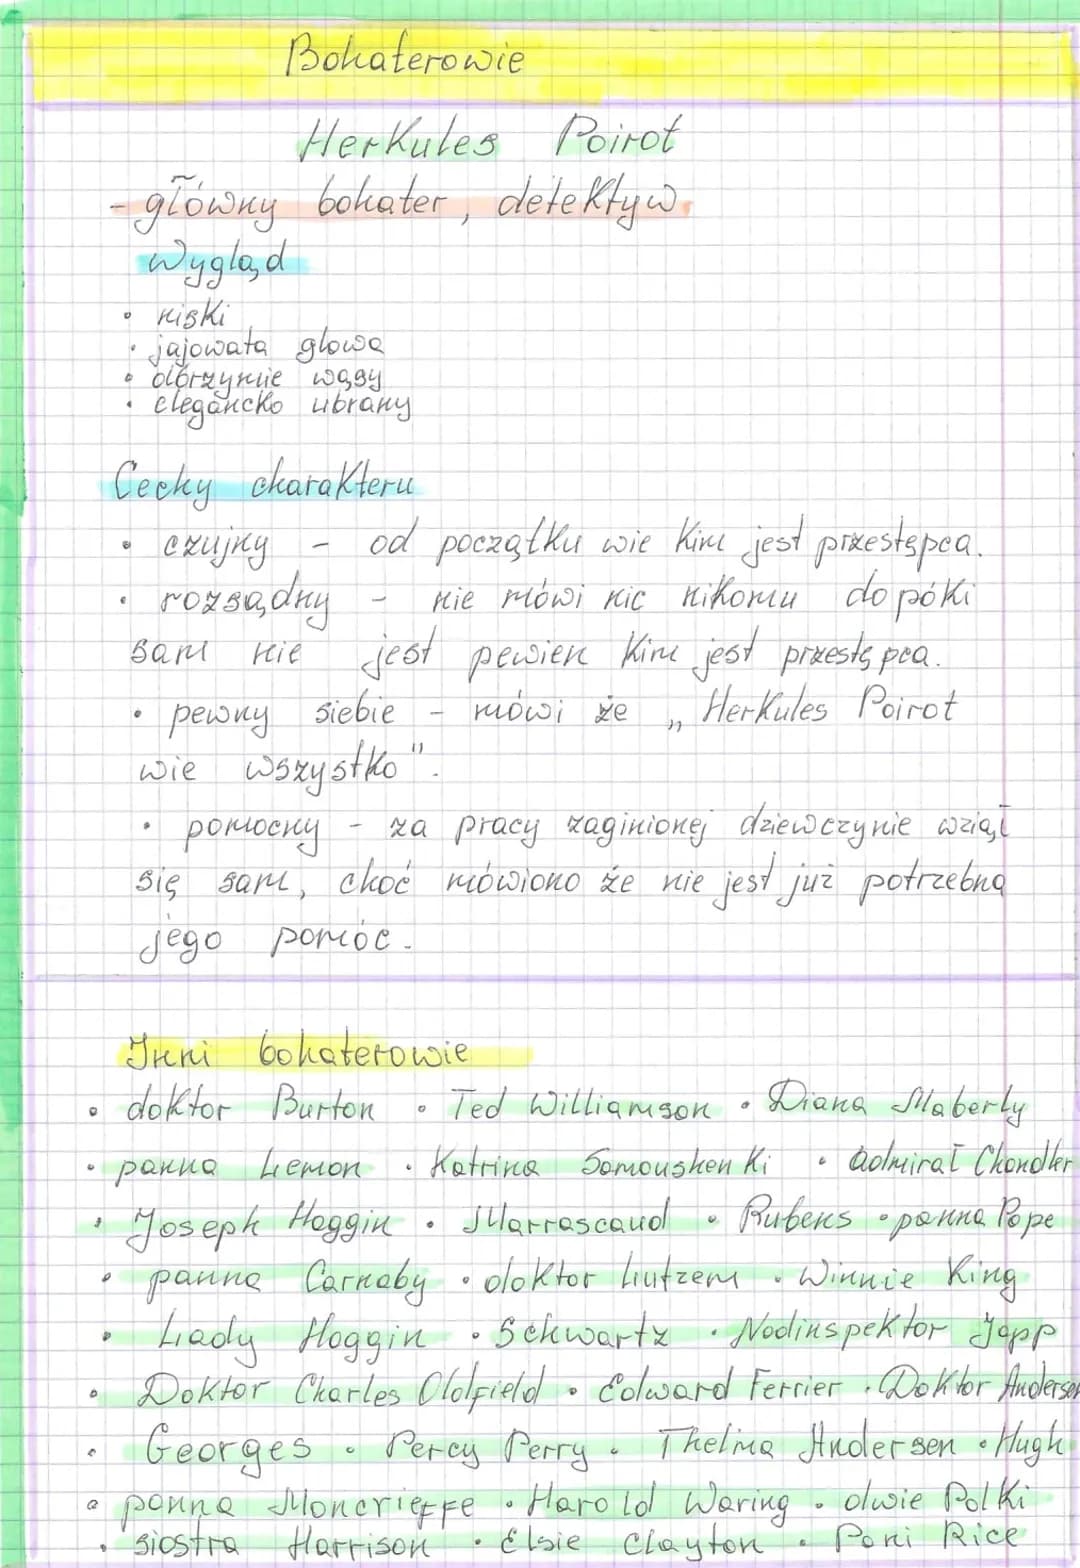 Bohaterowie
Herkules Poirot
- główny bohater, detektyw.
Wygląd
• niski
• jajowata głowa
• olbrzymie wąsy
• elegancko ubrany
Cechy charakteru
• czujny - od początku wie kim jest przestępca.
• rozsądny - nie mówi nic nikomu do póki
sam nie jest pewien kim jest przestępca.
• pewny siebie - mówi że „Herkules Poirot
wie wszystko".
• pomocny - za pracy zaginionej dziewczynie wziął
się sam, choć mówiono że nie jest już potrzebna
jego pomóc.
Inni bohaterowie
• doktor Burton • Ted Williamson • Diana Maberly
• panna Lemon • Katrina Samoushenki • admirał Chandler
• Joseph Hoggin • Marrascaud • Rubens • panna Pope
• panna Carnaby • doktor Lutzem • Winnie King
• Lady Hoggin • Schwartz • Nadinspektor Japp
• Doktor Charles Oldfield • Edward Ferrier • Doktor Andersen
• Georges • Percy Perry • Thelma Andersen • Hugh
• panna Moncrieffe • Harold Waring • dwie Polki
• siostra Harrison • Elsie Clayton • Pani Rice